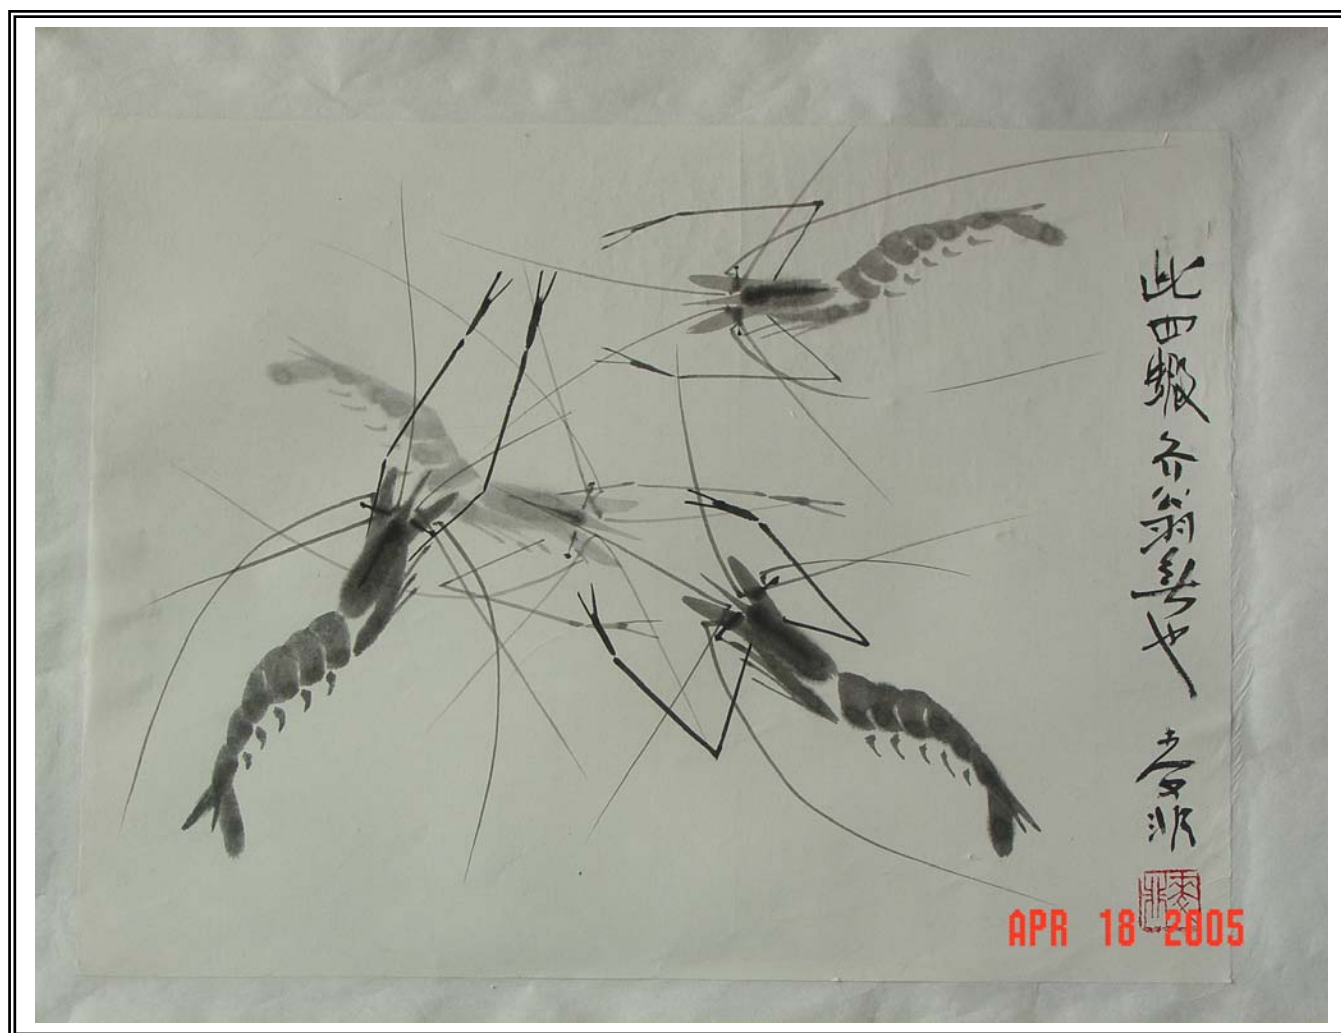 此四蝦齐翁無也
麦非
APR 18 2005